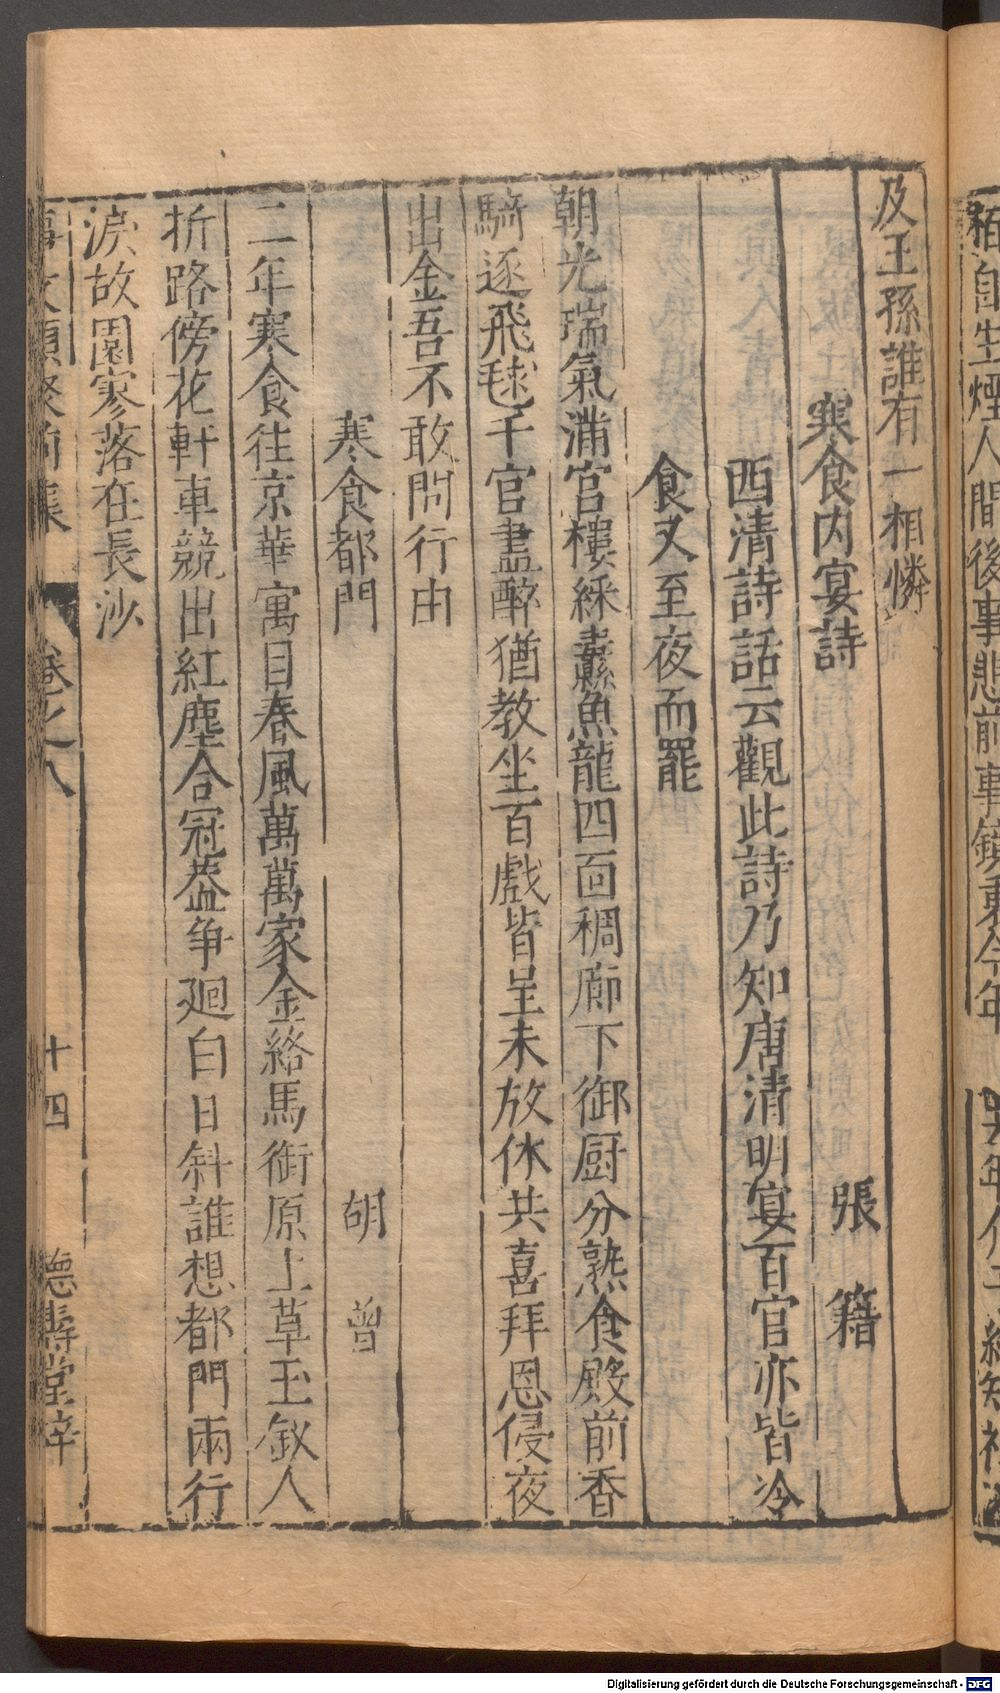 生煙人間後事悲前事鏡裏今年
及王孫誰有一相憐
寒食内宴詩 張 籍
西清詩話云觀此詩乃知唐清明宴百官亦皆冷
食又至夜而罷
朝光瑞氣滿宮樓綵纛魚龍四面稠廊下御厨分熟食殿前香
騎逐飛毬千官盡醉猶教坐百戲皆呈未放休共喜拜恩侵夜
出金吾不敢問行由
寒食都門 胡 曾
二年寒食往京華寓目春風萬萬家金絡馬銜原上草玉釵人
折路傍花軒車競出紅塵合冠蓋爭廻白日斜誰想都門兩行
淚故園寥落在長沙
事文類聚前集 卷之八 十四 德壽堂梓
Digitalisierung gefördert durch die Deutsche Forschungsgemeinschaft - DFG